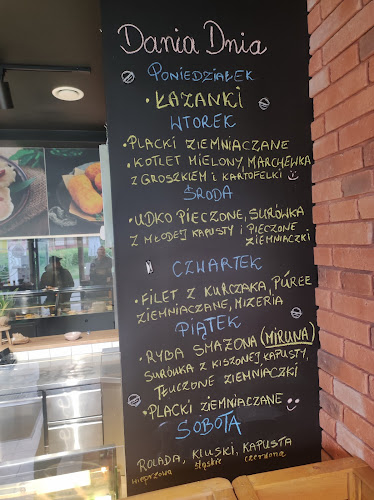 Dania Dnia
PONIEDZIAŁEK
• ŁAZANKI
WTOREK
• PLACKI ZIEMNIACZANE
• KOTLET MIELONY, MARCHEWKA
Z GROSZKIEM I KARTOFELKI
ŚRODA
• UDKO PIECZONE, SURÓWKA
Z MŁODEJ KAPUSTY I PIECZONE
ZIEMNIACZKI
CZWARTEK
• FILET Z KURCZAKA, PÚREE
ZIEMNIACZANE, MIZERIA
PIĄTEK
• RYBA SMAŻONA (MIRUNA)
SURÓWKA Z KISZONEJ KAPUSTY,
TŁUCZONE ZIEMNIACZKI
• PLACKI ZIEMNIACZANE
SOBOTA
ROLADA, KLUSKI, KAPUSTA
wieprzowa śląskie czerwona